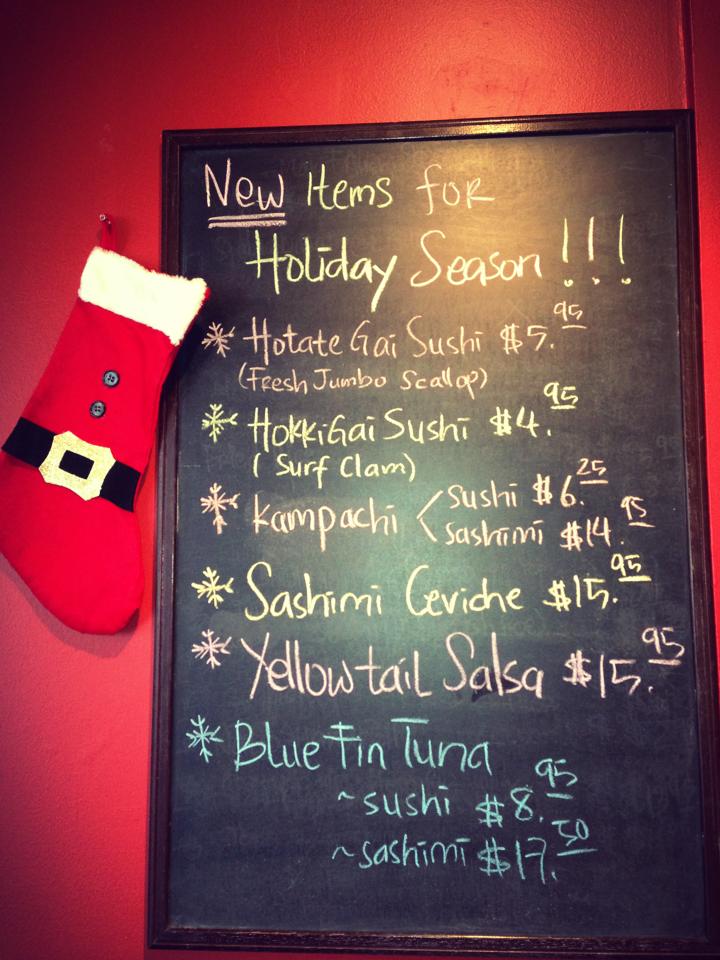 New Items for
Holiday Season !!!
Hotate Gai Sushi $5.95
(Fresh Jumbo Scallop)
HokkiGai Sushi $4.95
(Surf Clam)
Kampachi < sushi $6.25
sashimi $14.95
Sashimi Ceviche $15.95
Yellowtail Salsa $15.95
Blue Fin Tuna
~sushi $8.95
~sashimi $17.50